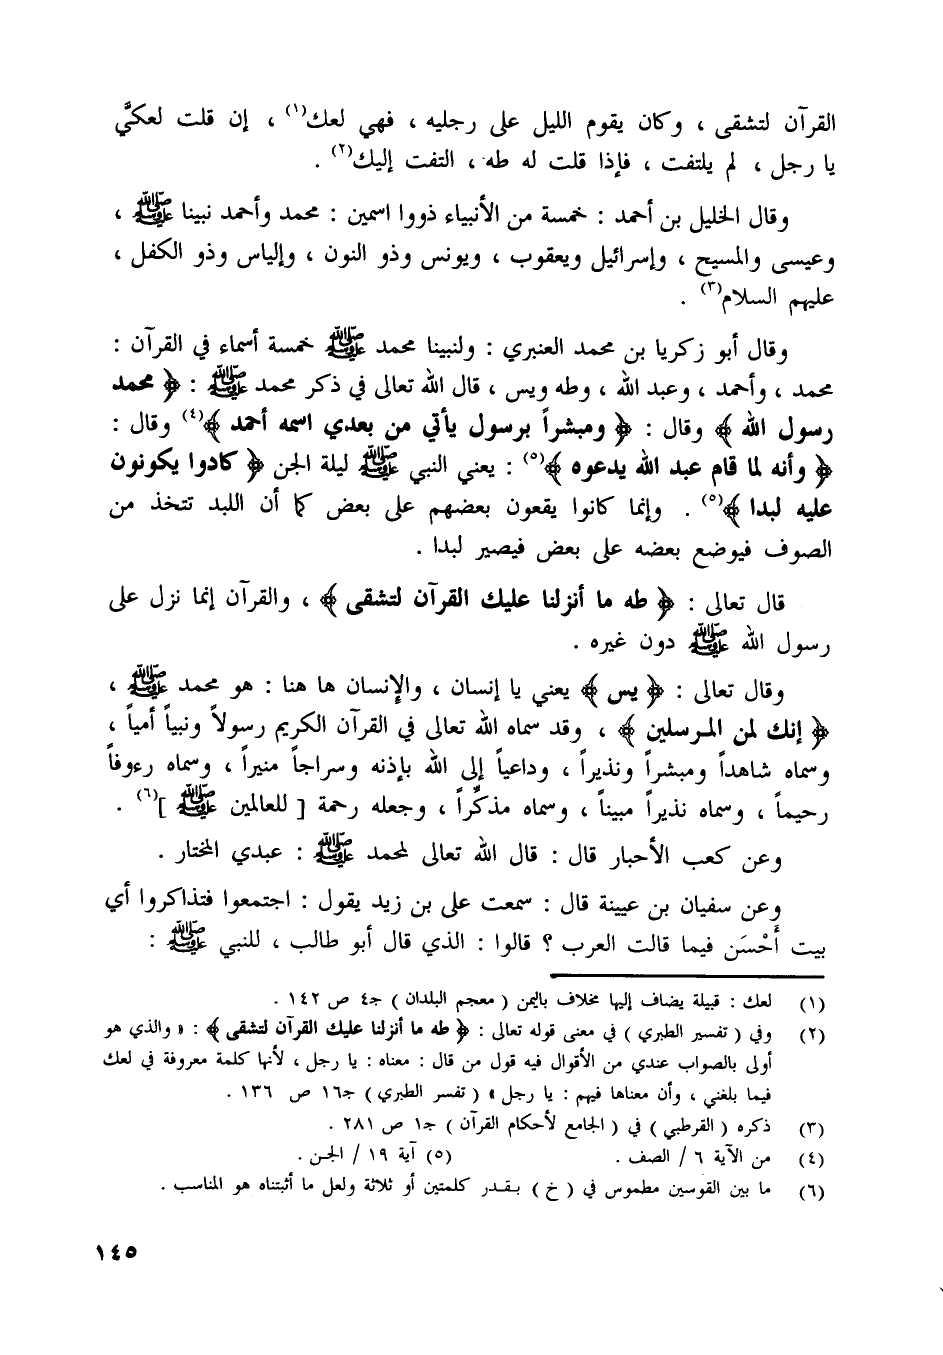 القرآن لتشقى ، وكان يقوم الليل على رجليه ، فهي لعك(١) ، إن قلت لعكيَّ
يا رجل ، لم يلتفت ، فإذا قلت له طه ، التفت إليك(٢) .
وقال الخليل بن أحمد : خمسة من الأنبياء ذووا اسمين : محمد وأحمد نبينا ﷺ ،
وعيسى والمسيح ، وإسرائيل ويعقوب ، ويونس وذو النون ، وإلياس وذو الكفل ،
عليهم السلام(٣) .
وقال أبو زكريا بن محمد العنبري : ولنبينا محمد ﷺ خمسة أسماء في القرآن :
محمد ، وأحمد ، وعبد الله ، وطه ويس ، قال الله تعالى في ذكر محمد ﷺ : ﴿ محمد
رسول الله ﴾ وقال : ﴿ ومبشراً برسول يأتي من بعدي اسمه أحمد ﴾(٤) وقال :
﴿ وأنه لما قام عبد الله يدعوه ﴾(٥) : يعني النبي ﷺ ليلة الجن ﴿ كادوا يكونون
عليه لبدا ﴾(٥) . وإنما كانوا يقعون بعضهم على بعض كما أن اللبد تتخذ من
الصوف فيوضع بعضه على بعض فيصير لبدا .
قال تعالى : ﴿ طه ما أنزلنا عليك القرآن لتشقى ﴾ ، والقرآن إنما نزل على
رسول الله ﷺ دون غيره .
وقال تعالى : ﴿ يس ﴾ يعني يا إنسان ، والإنسان ها هنا : هو محمد ﷺ ،
﴿ إنك لمن المرسلين ﴾ ، وقد سماه الله تعالى في القرآن الكريم رسولاً ونبياً أمياً ،
وسماه شاهداً ومبشراً ونذيراً ، وداعياً إلى الله بإذنه وسراجاً منيراً ، وسماه رءوفاً
رحيماً ، وسماه نذيراً مبيناً ، وسماه مذكِّراً ، وجعله رحمة [ للعالمين ﷺ ](٦) .
وعن كعب الأحبار قال : قال الله تعالى لمحمد ﷺ : عبدي المختار .
وعن سفيان بن عيينة قال : سمعت على بن زيد يقول : اجتمعوا فتذاكروا أي
بيت أَحْسَن فيما قالت العرب ؟ قالوا : الذي قال أبو طالب ، للنبي ﷺ :
(١) لعك : قبيلة يضاف إليها مخلاف باليمن ( معجم البلدان ) جـ٤ ص ١٤٢ .
(٢) وفي ( تفسير الطبري ) في معنى قوله تعالى : ﴿ طه ما أنزلنا عليك القرآن لتشقى ﴾ : « والذي هو
أولى بالصواب عندي من الأقوال فيه قول من قال : معناه : يا رجل ، لأنها كلمة معروفة في لعك
فيما بلغني ، وأن معناها فيهم : يا رجل » ( تفسر الطبري ) جـ١٦ ص ١٣٦ .
(٣) ذكره ( القرطبي ) في ( الجامع لأحكام القرآن ) جـ١ ص ٢٨١ .
(٤) من الآية ٦ / الصف . (٥) آية ١٩ / الجن .
(٦) ما بين القوسين مطموس في ( خ ) بقدر كلمتين أو ثلاثة ولعل ما أثبتناه هو المناسب .
١٤٥